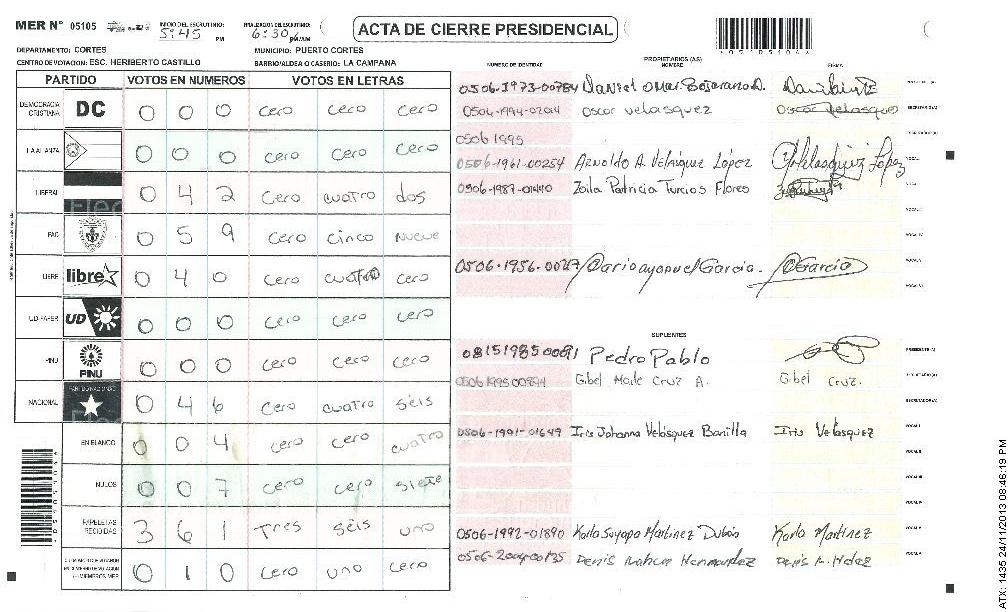 MER N° 05105
INICIO DEL ESCRUTINIO:
5:45 PM
FINALIZACION DEL ESCRUTINIO:
6:30 PM
ACTA DE CIERRE PRESIDENCIAL
DEPARTAMENTO: CORTES
MUNICIPIO: PUERTO CORTES
CENTRO DE VOTACION: ESC. HERIBERTO CASTILLO
BARRIO/ALDEA O CASERIO: LA CAMPANA
PARTIDO VOTOS EN NUMEROS VOTOS EN LETRAS
DEMOCRACIA CRISTIANA DC 0 0 0 cero cero cero
LA ALIANZA 0 0 0 cero cero cero
LIBERAL 0 4 2 cero cuatro dos
PAC 0 5 9 cero cinco nueve
LIBRE libre 0 4 0 cero cuatro cero
UD-FAPER UD 0 0 0 cero cero cero
PINU PINU 0 0 0 cero cero cero
NACIONAL PARTIDO NACIONAL 0 4 6 cero cuatro séis
EN BLANCO 0 0 4 cero cero cuatro
NULOS 0 0 7 cero cero siete
PAPELETAS RECIBIDAS 3 6 1 Tres séis uno
0 1 0 cero uno cero
NUMERO DE IDENTIDAD
PROPIETARIOS (AS)
NOMBRE
FIRMA
0506-1973-00784 Daniel Omar Bejarano A.
0506-1994-02014 oscar velasquez oscar velasquez
0506 1995
0506-1961-00254 Arnoldo A. Velásquez López
0506-1987-01440 Zoila Patricia Turcios Flores
0506-1956-0027 Garcia. Garcia
SUPLENTES
Pedro Pablo
Gibel Cruz A. Gibel Cruz.
0506-1991-01649 Iris Johanna Velásquez Bonilla Iris Velasquez
0506-1992-01890 Karla Suyapa Martinez Dubón Karla Martinez
Denis Hernandez
ATX: 1435 24/11/2013 08:46:19 PM